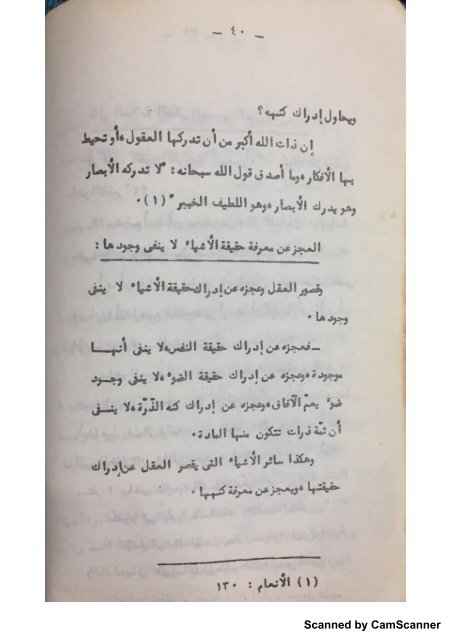 - ٤٠ -
ويحاول إدراك كنهه؟
إن ذات الله أكبر من أن تدركها العقول، أو تحيط
بها الأفكار، وما أصدق قول الله سبحانه: "لا تدركه الأبصار
وهو يدرك الأبصار، وهو اللطيف الخبير" (١).
العجز عن معرفة حقيقة الأشياء لا ينفى وجودها:
وقصور العقل وعجزه عن إدراك حقيقة الأشياء لا ينفى
وجودها.
ـ فعجزه عن إدراك حقيقة النفس، لا ينفى أنهـــا
موجودة، وعجزه عن إدراك حقيقة الضوء، لا ينفى وجــود
ضوء يعمّ الآفاق، وعجزه عن إدراك كنه الذّرة، لا ينــفى
أن ثمّة ذرات تتكون منها المادة.
وهكذا سائر الأشياء التى يقصر العقل عن إدراك
حقيقتها، ويعجز عن معرفة كنهها.
(١) الأنعام: ١٣٠
Scanned by CamScanner